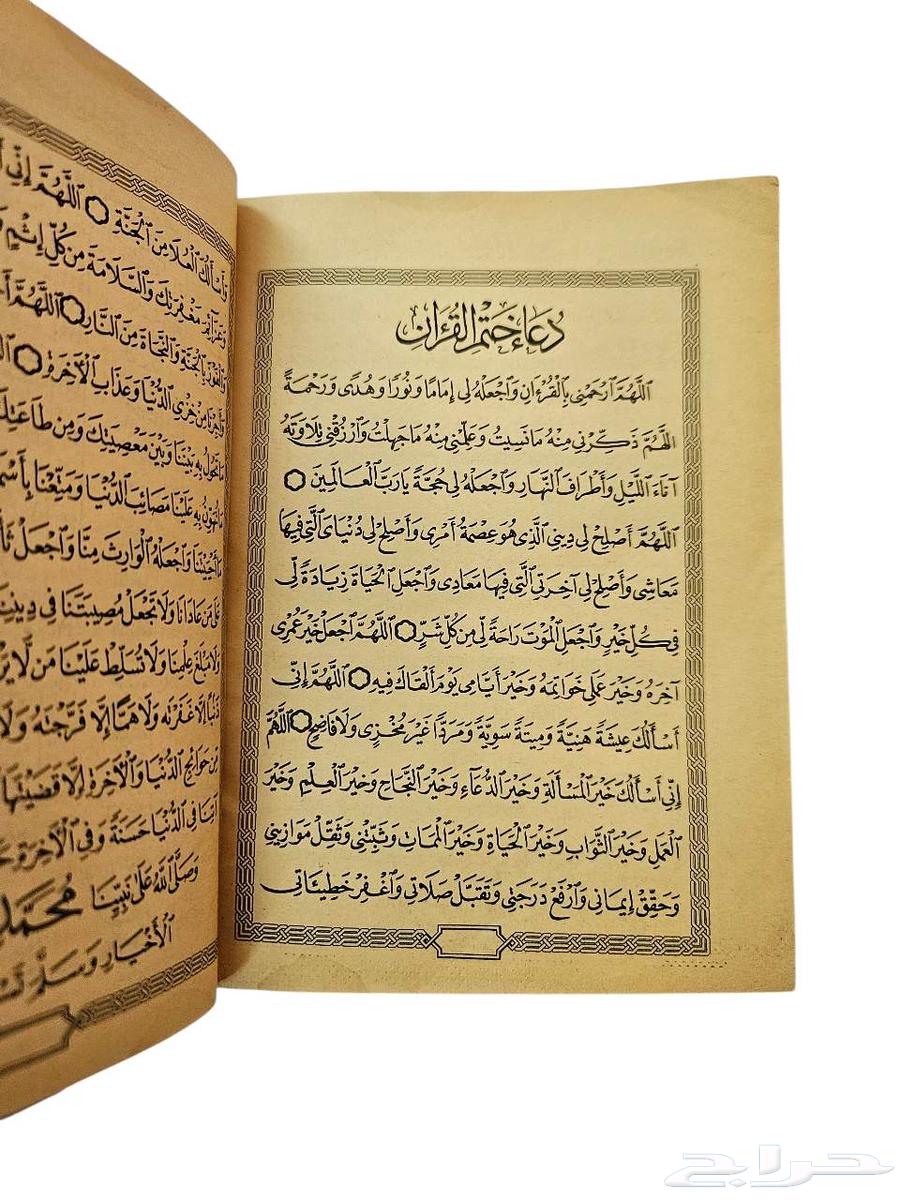 دُعَاءُ خَتْمِ الْقُرْآنِ
اَللَّهُمَّ ٱرْحَمْنِى بِالْقُرْءَانِ وَٱجْعَلْهُ لِى إِمَامًا وَنُورًا وَهُدًى وَرَحْمَةً
اللَّهُمَّ ذَكِّرْنِى مِنْهُ مَانَسِيتُ وَعَلِّمْنِى مِنْهُ مَاجَهِلْتُ وَٱرْزُقْنِى تِلَاوَتَهُ
آنَاءَ ٱللَّيْلِ وَأَطْرَافَ ٱلنَّهَارِ وَٱجْعَلْهُ لِى حُجَّةً يَارَبَّ ٱلْعَالَمِينَ
اَللَّهُمَّ أَصْلِحْ لِى دِينِى ٱلَّذِى هُوَ عِصْمَةُ أَمْرِى وَأَصْلِحْ لِى دُنْيَاىَ ٱلَّتِى فِيهَا
مَعَاشِى وَأَصْلِحْ لِى آخِرَتِى ٱلَّتِى فِيهَا مَعَادِى وَٱجْعَلِ ٱلْحَيَاةَ زِيَادَةً لِى
فِى كُلِّ خَيْرٍ وَٱجْعَلِ ٱلْمَوْتَ رَاحَةً لِى مِن كُلِّ شَرٍّ اَللَّهُمَّ ٱجْعَلْ خَيْرَ عُمْرِى
آخِرَهُ وَخَيْرَ عَمَلِى خَوَاتِمَهُ وَخَيْرَ أَيَّامِى يَوْمَ أَلْقَاكَ فِيهِ اَللَّهُمَّ إِنِّى
أَسْأَلُكَ عِيشَةً هَنِيَّةً وَمِيتَةً سَوِيَّةً وَمَرَدًّا غَيْرَ مُخْزِى وَلَافَاضِحٍ اَللَّهُمَّ
إِنِّى أَسْأَلُكَ خَيْرَ ٱلْمَسْأَلَةِ وَخَيْرَ ٱلدُّعَآءِ وَخَيْرَ ٱلنَّجَاحِ وَخَيْرَ ٱلْعِلْمِ وَخَيْرَ
ٱلْعَمَلِ وَخَيْرَ ٱلثَّوَابِ وَخَيْرَ ٱلْحَيَاةِ وَخَيْرَ ٱلْمَمَاتِ وَثَبِّتْنِى وَثَقِّلْ مَوَازِينِى
وَحَقِّقْ إِيمَانِى وَٱرْفَعْ دَرَجَتِى وَتَقَبَّلْ صَلَاتِى وَٱغْفِرْ خَطِيئَاتِى
وَأَسْأَلُكَ ٱلْعُلَا مِنَ ٱلْجَنَّةِ اَللَّهُمَّ إِنِّى
مَغْفِرَتِكَ وَٱلسَّلَامَةَ مِن كُلِّ إِثْمٍ
وَٱلْفَوْزَ بِٱلْجَنَّةِ وَٱلنَّجَاةَ مِنَ ٱلنَّارِ اَللَّهُمَّ
وَأَجِرْنَا مِنْ خِزْىِ ٱلدُّنْيَا وَعَذَابِ ٱلْآخِرَةِ
مَاتَحُولُ بِهِ بَيْنَنَا وَبَيْنَ مَعْصِيَتِكَ وَمِن طَاعَتِكَ
مَاتُهَوِّنُ بِهِ عَلَيْنَا مَصَائِبَ ٱلدُّنْيَا وَمَتِّعْنَا
مَا أَحْيَيْتَنَا وَٱجْعَلْهُ ٱلْوَارِثَ مِنَّا وَٱجْعَلْ
عَلَى مَنْ عَادَانَا وَلَا تَجْعَلْ مُصِيبَتَنَا فِى دِينِنَا
وَلَا مَبْلَغَ عِلْمِنَا وَلَا تُسَلِّطْ عَلَيْنَا مَن لَا
ذَنْبًا إِلَّا غَفَرْتَهُ وَلَا هَمًّا إِلَّا فَرَّجْتَهُ وَلَا
مِنْ حَوَائِجِ ٱلدُّنْيَا وَٱلْآخِرَةِ إِلَّا قَضَيْتَهَا
آتِنَا فِى ٱلدُّنْيَا حَسَنَةً وَفِى ٱلْآخِرَةِ
وَصَلَّى ٱللَّهُ عَلَى نَبِيِّنَا مُحَمَّدٍ
ٱلْأَخْيَارِ وَسَلَّمَ
حراج